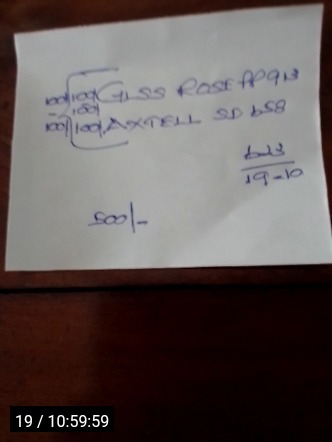 100/100 GLSS ROSE PP 913
100
100/100, AXTELL SD 658
623
19-10
500/-
19 / 10:59:59